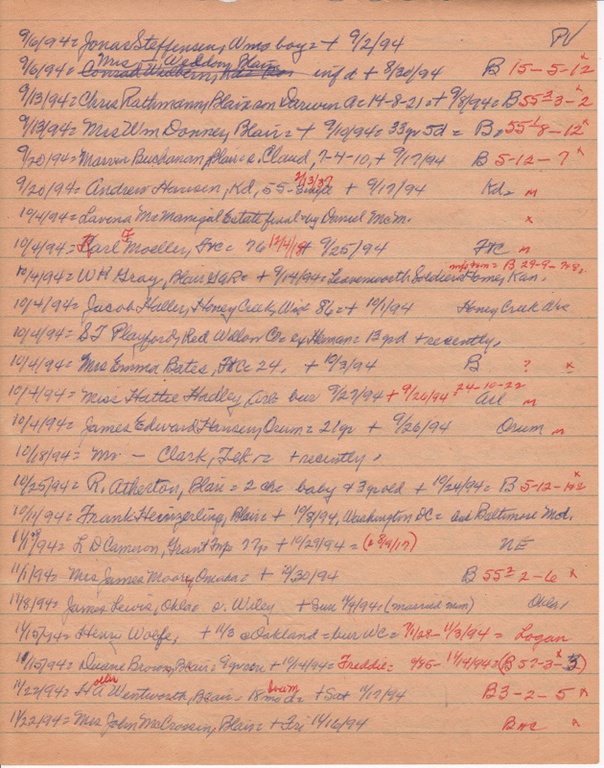 9/6/94= Jonas Steffensen, Wms boy= + 9/2/94 PV
9/6/94= Mrs Weldon Blair inf d + 8/30/94 B 15-5-12 x
9/13/94= Chris Rathmann, Blair= son Darwin a= 14-8-21= + 9/8/94= B 55²-3-2 x
9/13/94= Mrs Wm Donney Blair= + 9/10/94= 33yr 5d = B= 55¹-8-12 x
9/20/94= Marvin Buchanan, Blair s. Claud, 7-4-10, + 9/17/94 B 5-12-7 x
9/20/94= Andrew Hansen, Kd, 55- 2/13/37 + 9/17/94 Kd= m
10/4/94= Lavena McManigal Estate final= by Daniel McM. x
10/4/94= Karl F Moeller, FtC= 76 12/4/18 + 9/25/94 FtC m
10/4/94= WH Gray, Blair GAR= + 9/14/94= Leavenworth Soldiers Home, Kan. = B 29-9-
10/4/94= Jacob Haller, Honey Creek, Wis= 86= + 10/1/94 Honey Creek Wis
10/4/94= ST Playford, Red Willow Co= ex Herman= 13 yrd + recently,
10/4/94= Mrs Emma Bates, FtC= 24, + 10/3/94 B ? x
10/4/94= Miss Hattie Hadley, Arl= bur 9/27/94 + 9/26/94 24-10-22 Arl m
10/4/94= James Edward Hansen, Orum= 21yr + 9/26/94 Orum m
10/18/94= Mr - Clark, Tek = + recently,
10/25/94= R. Atherton, Blair= 2 chn baby & 3yrold + 10/24/94= B 5-12-1&2 x
10/11/94= Frank Heinzerling, Blair= + 10/8/94, Washington DC= and Baltimore Md.
11/1/94= L D Cameron, Grant Twp 77yr + 10/29/94= (b 8/9/17) NE
11/1/94= Mrs James Moore, Omaha= + 10/30/94 B 55² 2-6 x
11/8/94= James Lewis, Okla s. Wiley + Sun 11/4/94= (married man) Okla,
11/15/94= Henry Woefe, + 11/3 Oakland= bur WC= 9/1/28- 11/3/94= Logan
11/15/94= Duane Brown, Blair= 9yrson + 11/14/94= Freddie= 9/85- 11/14/94= (B 57-3-3) x
11/22/94= HA Wentworth, Blair= 18mo d= + Sat 11/17/94 B 3-2-5 x
11/22/94= Mrs John McCrossin, Blair= + Fri 11/16/94 B x